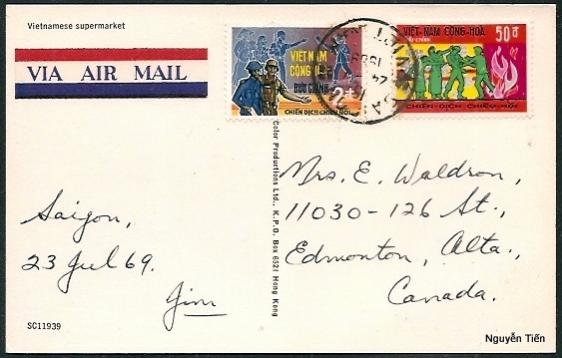 Vietnamese supermarket
VIA AIR MAIL
VIỆT NAM
CỘNG HÒA
BƯU CHÍNH
2đ
CHIẾN DỊCH CHIÊU HỒI
VIỆT-NAM CỘNG-HÒA
BƯU CHÍNH
50đ
CHIẾN-DỊCH CHIÊU-HỒI
Color Productions Ltd., K.P.O. Box 6521 Hong Kong
Saigon,
23 Jul 69.
Jim
Mrs. E. Waldron,
11030-126 St.,
Edmonton, Alta.,
Canada.
SC11939
Nguyễn Tiến